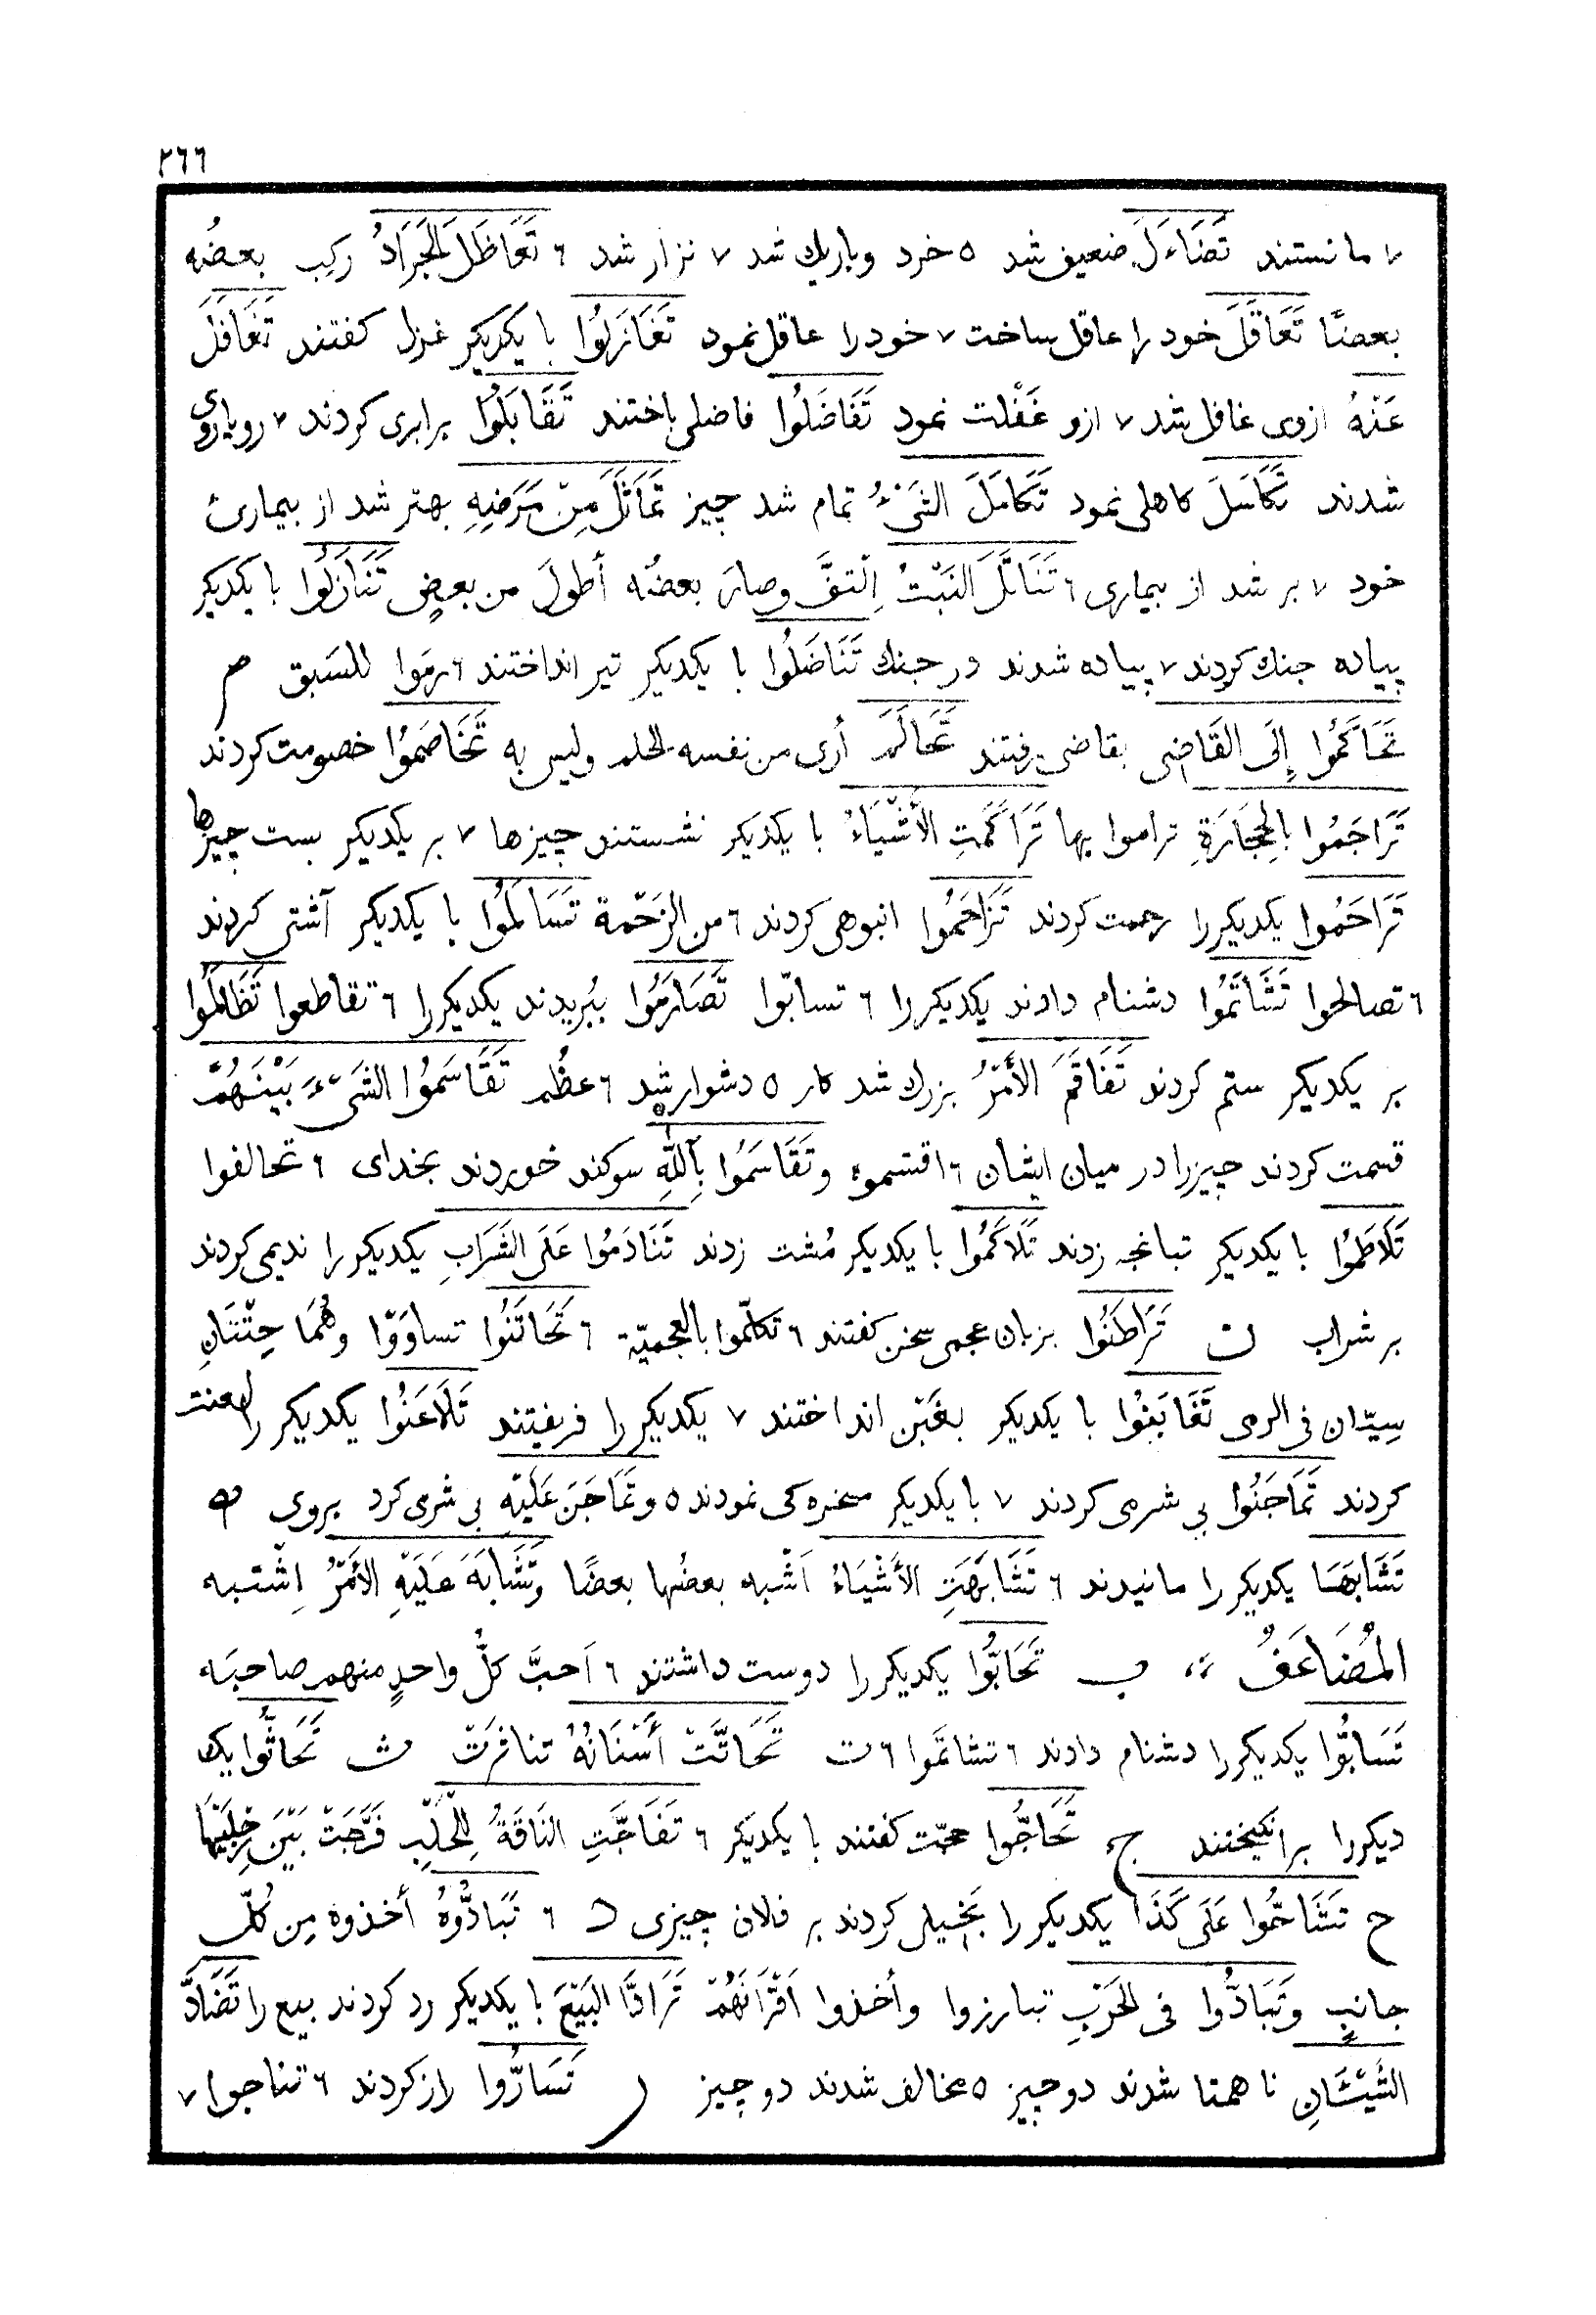 ٢٦٦
٧ مانستند تَضَاءَلَ ضعیف شد ٥ خرد وباریك شد ٧ نزار شد ٦ تَعَاظَلَ الْجَرَادُ رکب بعضُه
بعضًا تَعَاقَلَ خود را عاقل ساخت ٧ خود را عاقل نمود تَغَازَلُوا با یکدیکر غزل کفتند تَغَافَلَ
عَنْهُ ازوی غافل شد ٧ ازو غَفْلت نمود تَفَاضَلُوا فاضلی باختند تَقَابَلُوا برابری کردند ٧ رویاروی
شدند تَكَاسَلَ کاهلی نمود تَكَامَلَ الشَیْءُ تمام شد چیز تَمَاثَلَ مِنْ مَرَضِهِ بهتر شد از بیماریٔ
خود ٧ بر شد از بیماری ٦ تَنَاتَلَ النَبْتُ اِلْتفَّ وصارَ بعضُه أطولَ من بعضٍ تَنَازَلُوا با یکدیکر
پیاده جنك کردند ٧ پیاده شدند در جنك تَنَاضَلُوا با یکدیکر تیر انداختند ٦ رمَوا للسَبق م
تَحَاكَمُوا إِلَى القَاضِی بقاضی رفتند تَحَالَمَ أری من نفسه الحلم ولیس به تَخَاصَمُوا خصومت کردند
تَرَاجَمُوا بِالحِجَارَةِ تراموا بها تَرَاكَمَتِ الأَشْيَاءُ با یکدیکر نشستند چیزها ٧ بر یکدیکر بست چیزها
تَرَاحَمُوا یکدیکررا رحمت کردند تَزَاحَمُوا انبوهی کردند ٦ من الزَحْمة تَسَالَمُوا با یکدیکر آشتی کردند
٦ تصالحوا تَشَاتَمُوا دشنام دادند یکدیکررا ٦ تسابّوا تَصَارَمُوا ببُریدند یکدیکررا ٦ تقاطعوا تَظَالَمُوا
بر یکدیکر ستم کردند تَفَاقَمَ الأَمْرُ بزرك شد کار ٥ دشوار شد ٦ عظُم تَقَاسَمُوا الشَیْءَ بَيْنَهُمْ
قسمت کردند چیزرا در میان ایشان ٦ اقتسموه وتَقَاسَمُوا بِاللّٰهِ سوکند خوردند بخدای ٦ تحالفوا
تَلَاطَمُوا با یکدیکر تبانچه زدند تَلَاكَمُوا با یکدیکر مُشت زدند تَنَادَمُوا عَلَى الشَرَابِ یکدیکر را ندیمی کردند
بر شراب ن تَرَاطَنُوا بزبان عجمی سخن کفتند ٦ تکلّموا بالعجمیّة ٦ تَحَاتَنُوا تساوَوْا وهُمَا حِتْنَانِ
سِیّان فی الرمی تَغَابَنُوا با یکدیکر بغَبْن انداختند ٧ یکدیکر را فریفتند تَلَاعَنُوا یکدیکر را لعنت
کردند تَمَاجَنُوا بی شرمی کردند ٧ با یکدیکر مسخره کی نمودند ٥ وتَمَاجَنَ عَلَيْهِ بی شرمی کرد بروی ه
تَشَابَهَا یکدیکر را مانیدند ٦ تَشَابَهَتِ الأَشْيَاءُ اَشْبه بعضُها بعضًا وتَشَابَهَ عَلَيْهِ الأَمْرُ اِشْتبه
المُضَاعَفُ ب تَحَابُّوا یکدیکر را دوست داشتند ٦ اَحبَّ کلُّ واحدٍ منهم صاحبَه
تَسَابُّوا یکدیکررا دشنام دادند ٦ تشاتَموا ٦ ت تَحَاتَّتْ أَسْنَانُهُ تناثرَتْ ث تَحَاثُّوا یك
دیکررا برانکیختند ج تَحَاجُّوا حجّت کفتند با یکدیکر ٦ تَفَاجَّتِ النَاقَةُ لِلْحَلْبِ فَرَّجَتْ بَيْنَ رِجْلَيْهَا
ح تَشَاحُّوا عَلَى كَذَا یکدیکر را بَخیلی کردند بر فلان چیزی د ٦ تَبَادُّوهُ أخذوه مِن كُلّ
جانبٍ وتَبَادُّوا فی الحَرْبِ تبارزوا وأخذوا اَقْرَانَهُمْ تَرَادَّا البَيْعَ با یکدیکر رد کردند بیع را تَضَادَّ
الشَيْئَانِ نا همتا شدند دو چیز ٥ مخالف شدند دو چیز ر تَسَارُّوا راز کردند ٦ تناجوا ٧